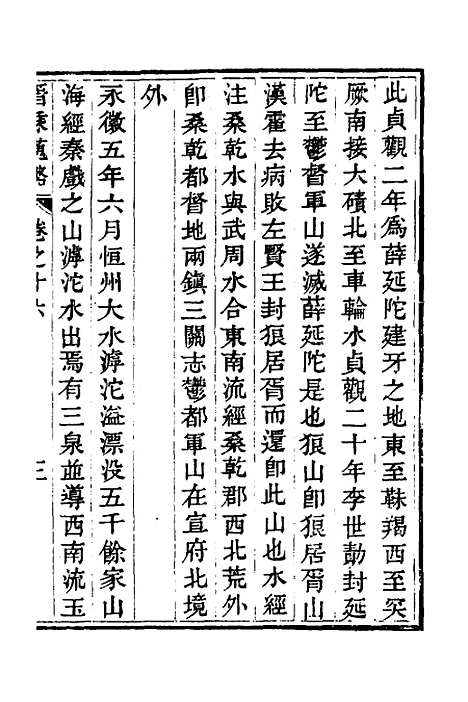 此貞觀二年爲薛延陀建牙之地東至靺羯西至突
厥南接大磧北至車輪水貞觀二十年李世勣封延
陀至鬱督軍山遂滅薛延陀是也狼山卽狼居胥山
漢霍去病敗左賢王封狼居胥而還卽此山也水經
注桑乾水與武周水合東南流經桑乾郡西北荒外
卽桑乾都督地兩鎮三關志鬱都軍山在宣府北境
外
永徽五年六月恒州大水滹沱溢漂没五千餘家山
海經秦戲之山滹沱水出焉有三泉並導西南流玉
晉乘蒐略 卷之十六 三